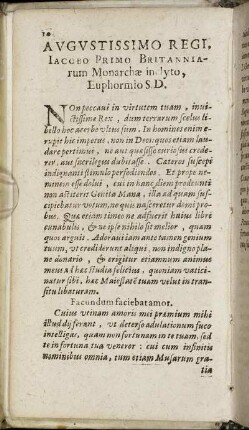 10
AVGVSTISSIMO REGI,
IACOBO PRIMO BRITANNIA-
rum Monarchæ inclyto,
Euphormio S.D.
NOn peccaui in virtutem tuam, inui-
ctissime Rex, dum terrarum scelus li-
bello hoc acerbo vltus sum. In homines enim e-
rupit hic impetus, non in Deos; quos etiam lau-
dare pertimui, ne aut quæsisse errorem crede-
rer, aut sacrilegus dubitasse. Cæteros suscepi
indignantis stimulo persodiendos. Et prope ne-
minem esse dolui, cui in hanc diem prodeunti
non acciteret Genita Mana, illa ad quam sus-
cipiebatur votum, ne quis nasceretur domi pro-
bus. Quæ etiam timeo ne adfuerit huius libri
cunabulis, & ne ipse nihilo sit melior, quam
quos arguit. Adoraui iam ante tamen genium
tuum, vt crediderunt aliqui, non indigno pla-
ne donario, & erigitur etiamnum animus
meus ad hæc studia felicius, quoniam vatici-
natur sibi, hæc Maiestate tuæ velut in tran-
situ libaturam.
Facundum faciebat amor.
Cuius vtinam amoris mei præmium mihi
istud differant, vt deterso adulationum fuco
intelligas, quam non fortunam in te tuam, sed
te in fortuna tua veneror: cui cum infinitis
nominibus omnia, tum etiam Musarum gra-
tia